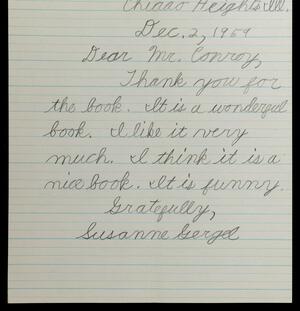 Chicago Heights, Ill.
Dec. 2, 1959
Dear Mr. Conroy,
Thank you for
the book. It is a wonderful
book. I like it very
much. I think it is a
nice book. It is funny.
Gratefully,
Susanne Gergel